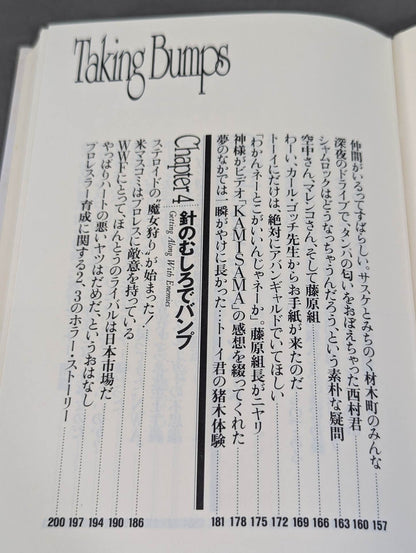 Taking Bumps
仲間がいるってすばらしい。サスケとみちのく材木町のみんな 157
深夜のドライブで、タンパの匂いをおぼえちゃった西村君 160
シャムロックはどうなっちゃうんだろう、という素朴な疑問 163
空中さん、マレンコさん、そして藤原組 166
わーい、カール・ゴッチ先生からお手紙が来たのだ 169
トーイにだけは、絶対にアバンギャルドでいてほしい 172
「わかんネーとこがいいんじゃネーか。」藤原組長がニヤリ 175
神様がビデオ『KAMISAMA』の感想を綴ってくれた 178
夢のなかでは一瞬がやけに長かった…トーイ君の猪木体験 181
Chapter 4 針のむしろでバンプ
Getting Along With Enemies
ステロイドの“魔女狩り”が始まった! 186
米マスコミはプロレスに敵意を持っている 190
WWFにとって、ほんとうのライバルは日本市場だ 194
やっぱりハートの悪いヤツはだめだ、というおはなし 197
プロレスラー育成に関する2、3のホラー・ストーリー 200